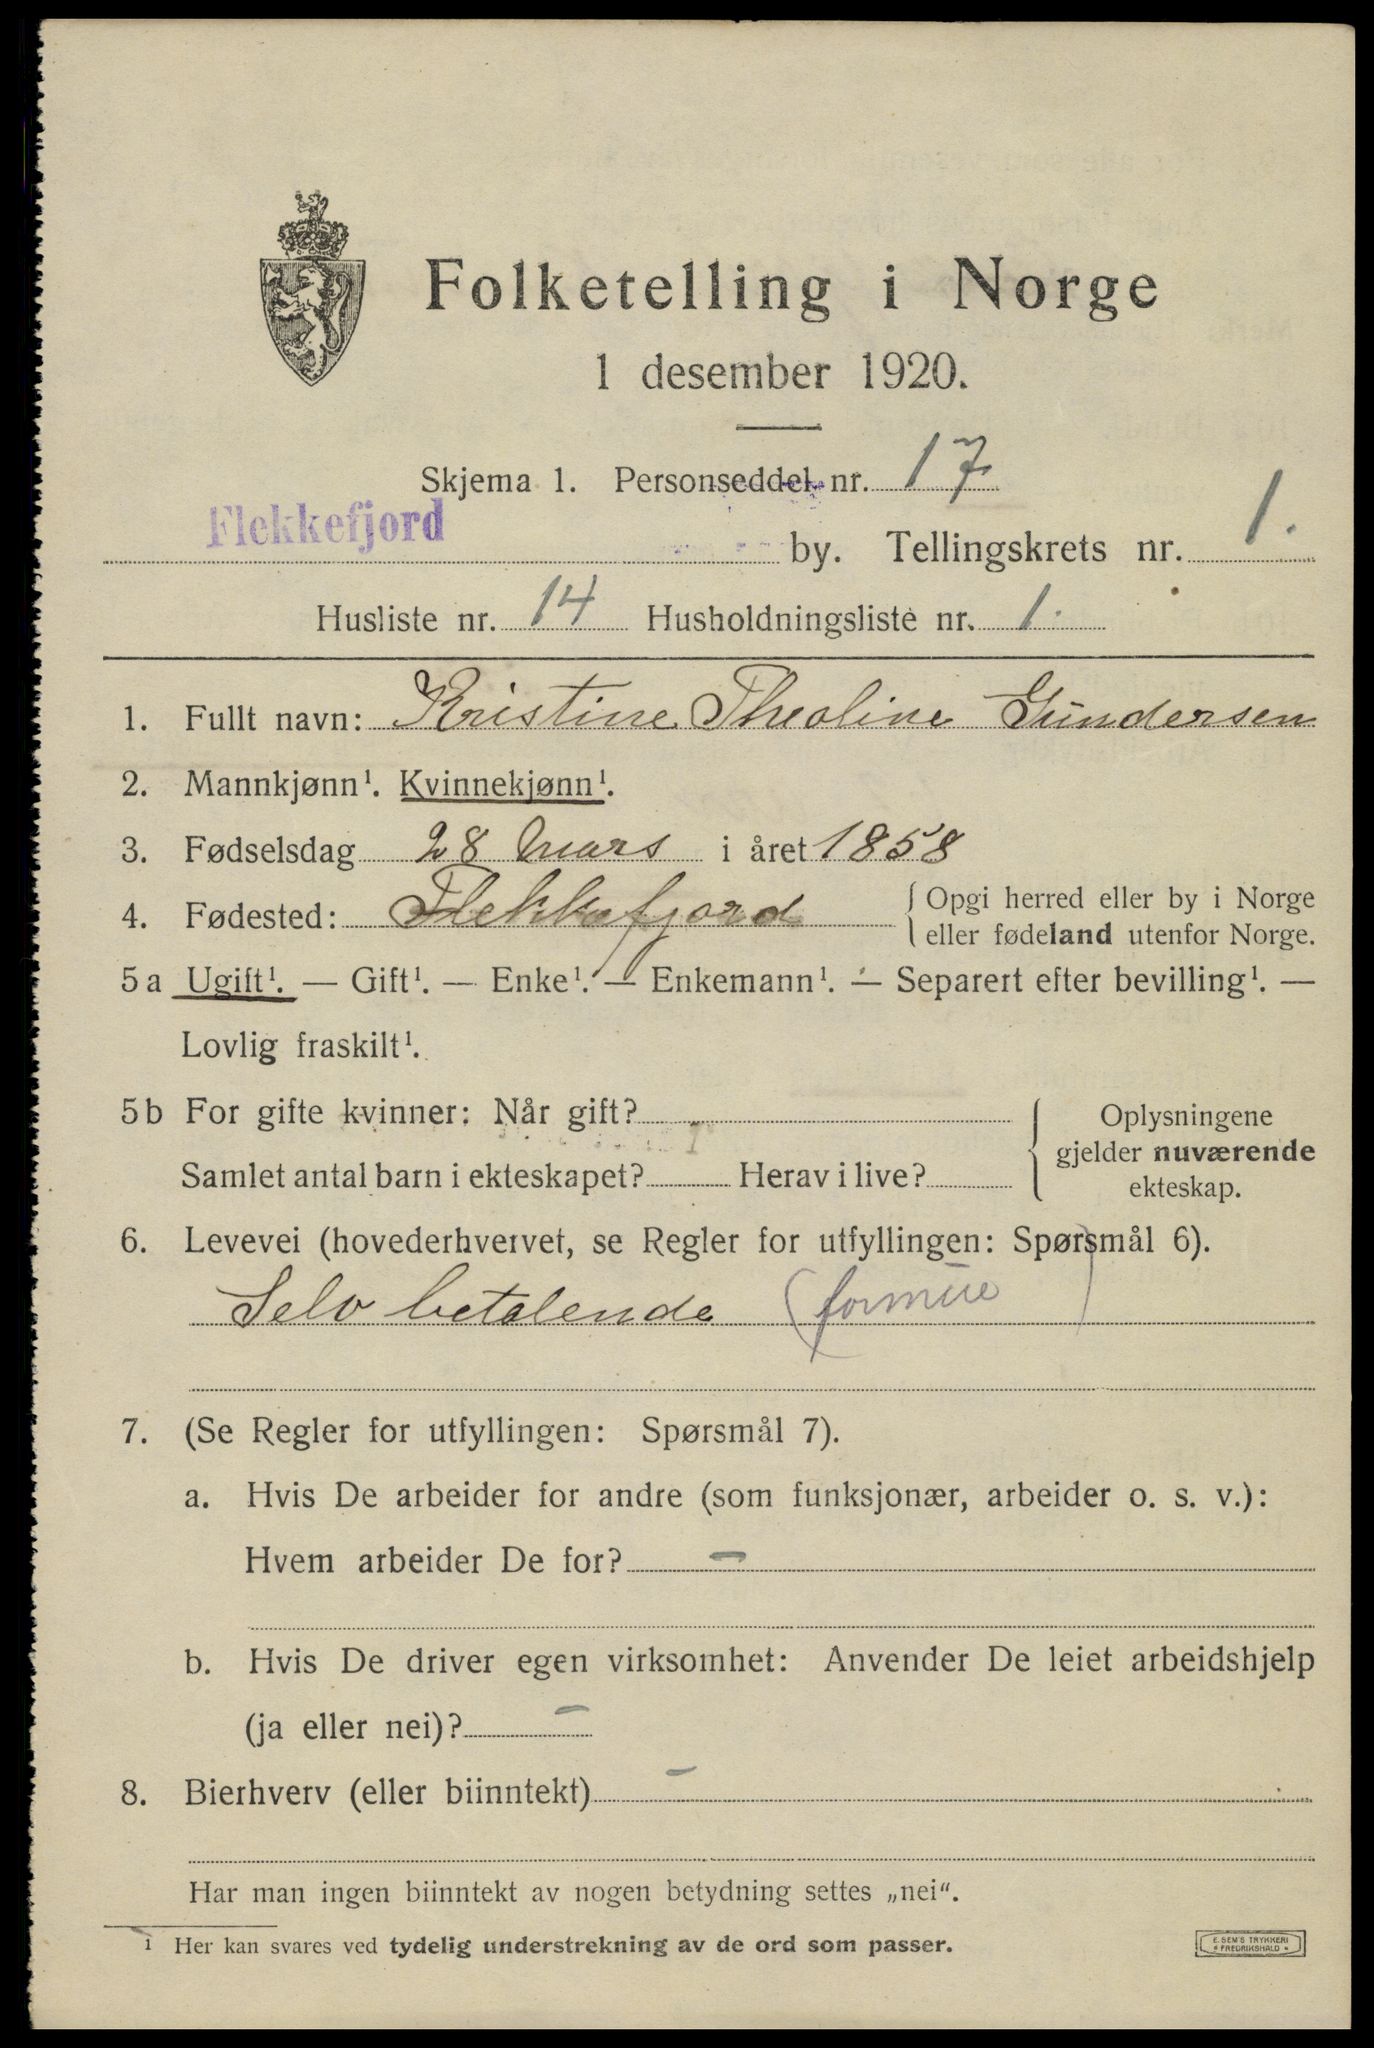 Folketelling i Norge
1 desember 1920.
Skjema 1. Personseddel nr. 17
Flekkefjord by. Tellingskrets nr. 1.
Husliste nr. 14 Husholdningsliste nr. 1.
1. Fullt navn: Kristine Theoline Gundersen
2. Mannkjønn¹. Kvinnekjønn¹.
3. Fødselsdag 28 Mars i året 1858
4. Fødested: Flekkefjord { Opgi herred eller by i Norge
eller fødeland utenfor Norge.
5 a Ugift¹. — Gift¹. — Enke¹. — Enkemann¹. — Separert efter bevilling¹. —
Lovlig fraskilt¹.
5 b For gifte kvinner: Når gift?
Samlet antal barn i ekteskapet? Herav i live?
{ Oplysningene
gjelder nuværende
ekteskap.
6. Levevei (hovederhvervet, se Regler for utfyllingen: Spørsmål 6).
Selv betalende (formue)
7. (Se Regler for utfyllingen: Spørsmål 7).
a. Hvis De arbeider for andre (som funksjonær, arbeider o. s. v.):
Hvem arbeider De for? —
b. Hvis De driver egen virksomhet: Anvender De leiet arbeidshjelp
(ja eller nei)? —
8. Bierhverv (eller biinntekt) —
Har man ingen biinntekt av nogen betydning settes „nei“.
¹ Her kan svares ved tydelig understrekning av de ord som passer.
E. SEM'S TRYKKERI
FREDRIKSHALD